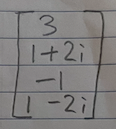 3
1+2i
-1
1-2i